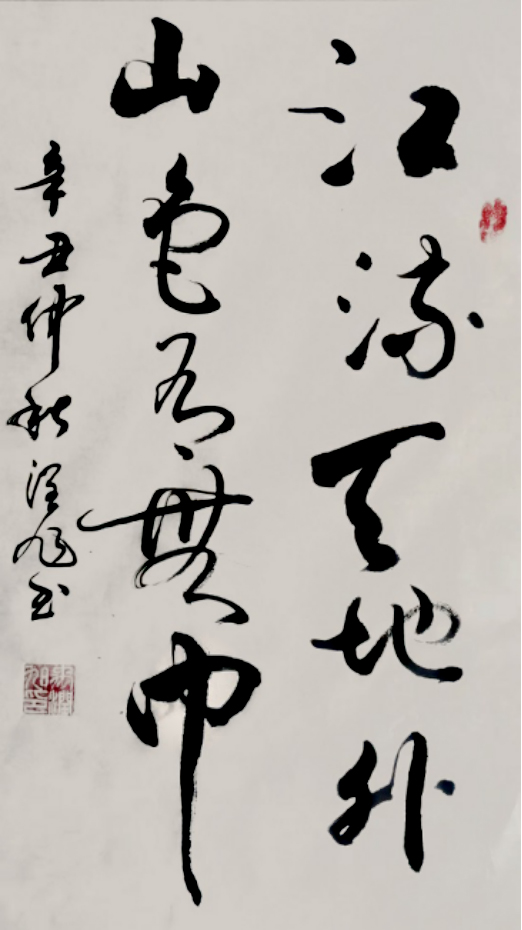 江流天地外
山色有無中
辛丑仲秋旭书